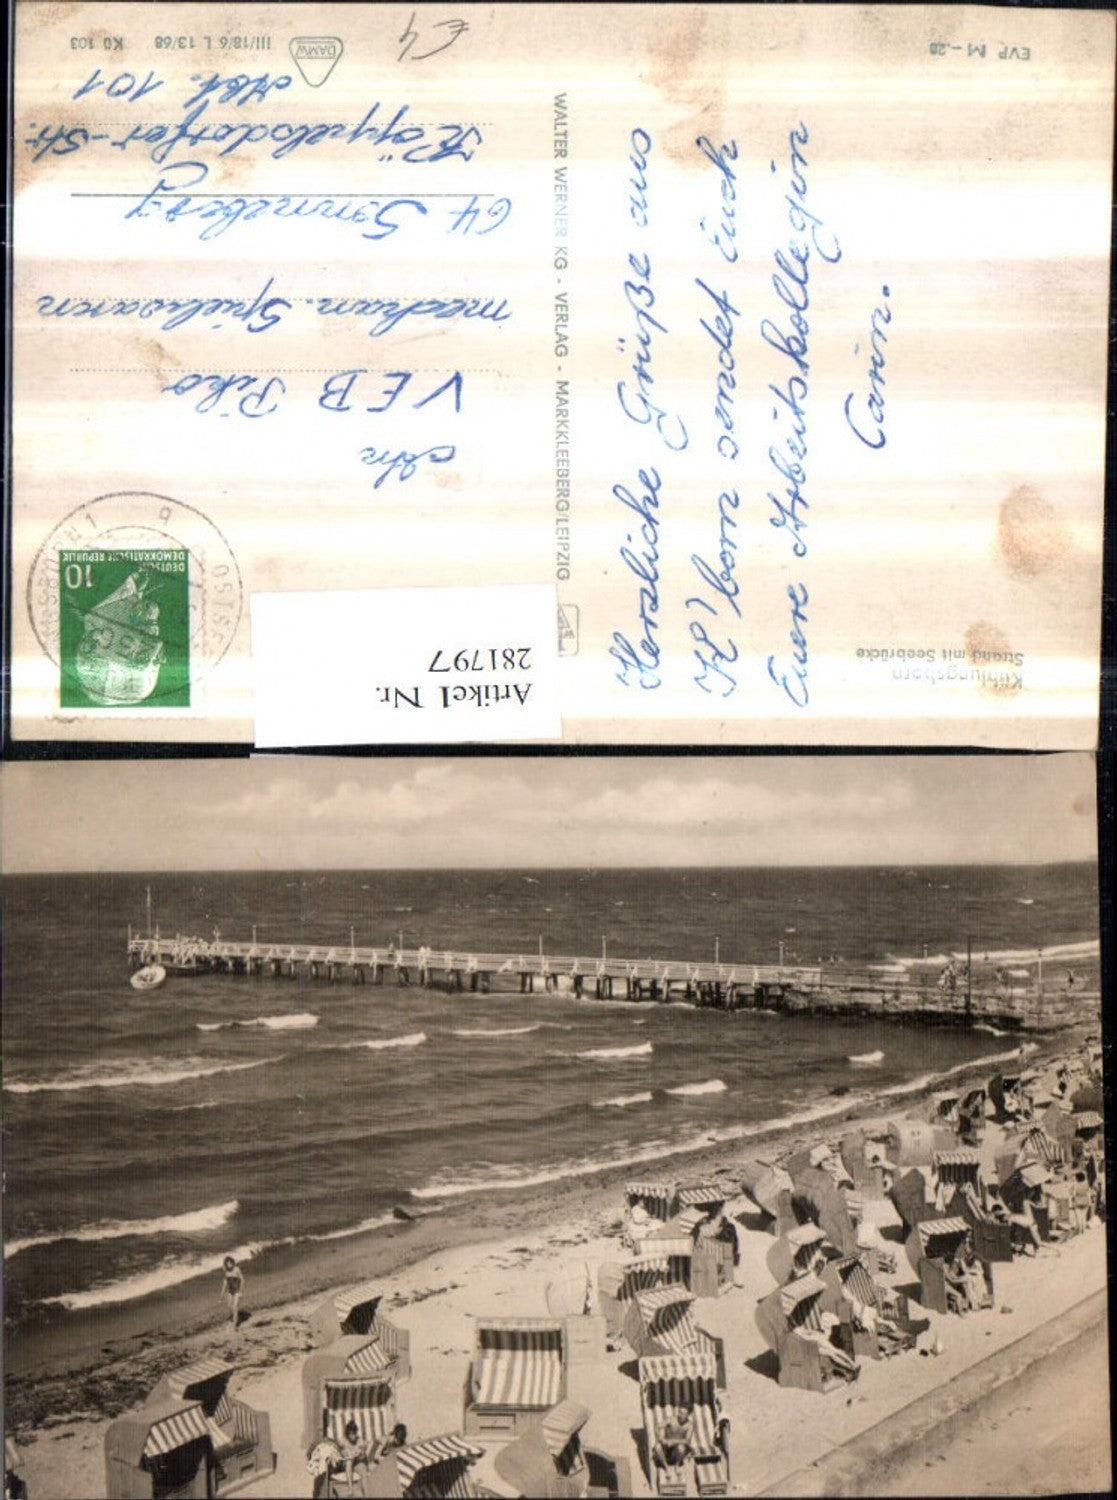 Kühlungsborn
Strand mit Seebrücke
EVP M -.20
Herzliche Grüße aus
K'born sendet Euch
Eure Arbeitskollegin
Carin.
WALTER WERNER KG - VERLAG - MARKKLEEBERG/LEIPZIG
DEUTSCHE
DEMOKRATISCHE REPUBLIK
10
OSTSEE
An
VEB Piko
mechan. Spielwaren
64 Sonneberg
Köppelsdorfer-Str.
Abt. 101
DAMW
III/18/6 L 13/68 Kü 103
Artikel Nr.
281797